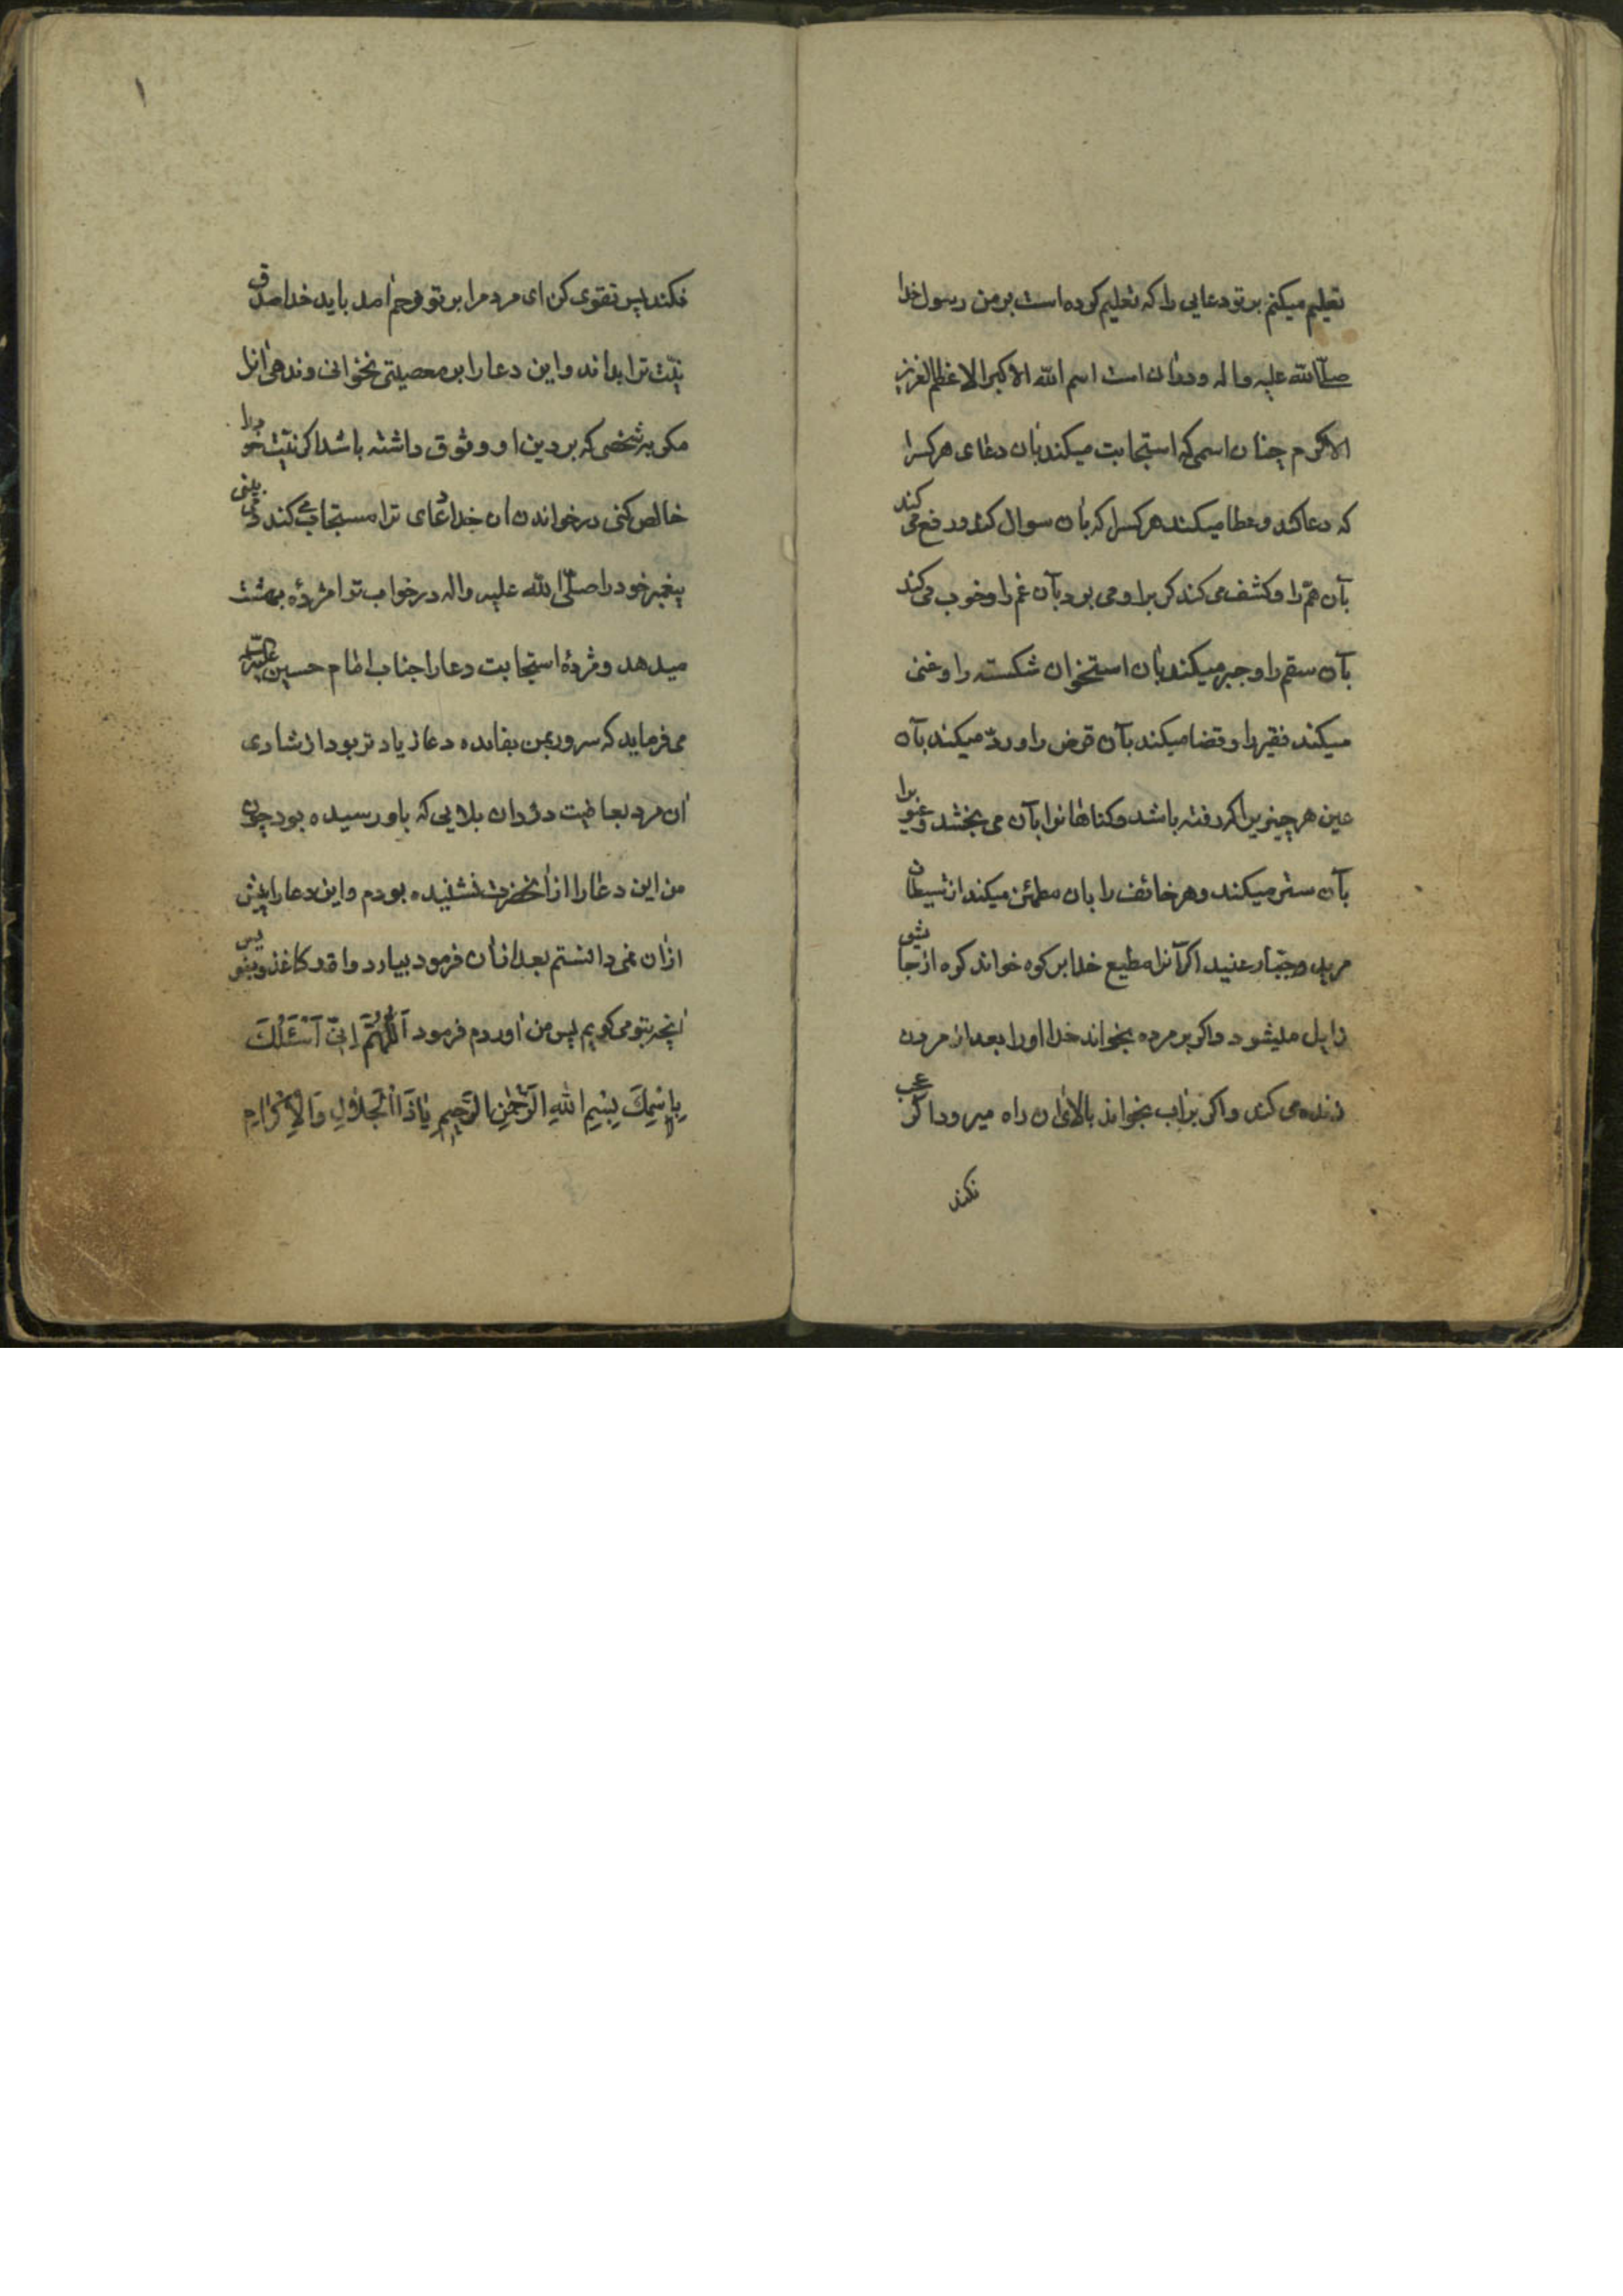 تعلیم میکنم بر تو دعایی را که تعلیم کرده است بر من رسول خدا
صلی الله علیه واله و در ان است اسم الله الاکبر الاعظم العزیز
الاکرم چنان اسمی که استجابت میکند بان دعای هر کسرا
که دعا کند و عطا میکند هر کسرا که بان سوال کند و دفع می کند
بآن هم را و کشف می کند کرب را و می برد بآن غم را و خوب می کند
بآن سقم را و جبر میکند بان استخوان شکسته را و غنی
میکند فقیر را و قضا میکند بآن قرض را و ردّ میکند بآن
عین هر چیزیرا که رفته باشد و کناهانرا بآن می بخشد و عیوبرا
بآن ستر میکند و هر خائف را بان مطمئن میکند از شیطان
مرید و جبّار عنید اکر آنرا مطیع خدا بر کوه خواند کوه از جا
زایل میشود واکر بر مرده بخواند خدا او را بعد از مردن
زنده می کند واکر بر اب بخواند بالای ان راه میرود اکر عجب
نکند
نکند پس تقوی کن ای مرد مرا بر تو رحم امد باید خدا صدق
نیّت ترا بداند و این دعا را بر معصیتی نخوانی و ندهی انرا
مکر به شخصی که بر دین او وثوق داشته باشد اکر نیّت خود را
خالص کنی در خواندن ان خدا دعای ترا مستجاب می کند و می بینی
پیغمبر خود را صلّی الله علیه واله در خواب ترا مژدۀ بهشت
میدهد و مژدۀ استجابت دعا را جناب امام حسین علیه السلام
می فرماید که سرور من بفایده دعا زیاد تر بود از شادی
ان مرد بعافیت در ان بلایی که باو رسیده بود چون
من این دعا را از انحضرت نشنیده بودم و این دعا را پیش
از ان نمی دانستم بعد از ان فرمود بیار دواة و کاغذ و بنویس
انچه بتو می کویم پس من اوردم فرمود اَللّٰهُمَّ اِنّی اَسْئَلُكَ
بِاسْمِكَ بِسْمِ اللهِ الرَّحْمٰنِ الرَّحیمِ یٰا ذَا الْجَلٰالِ وَالْاِكْرٰامِ